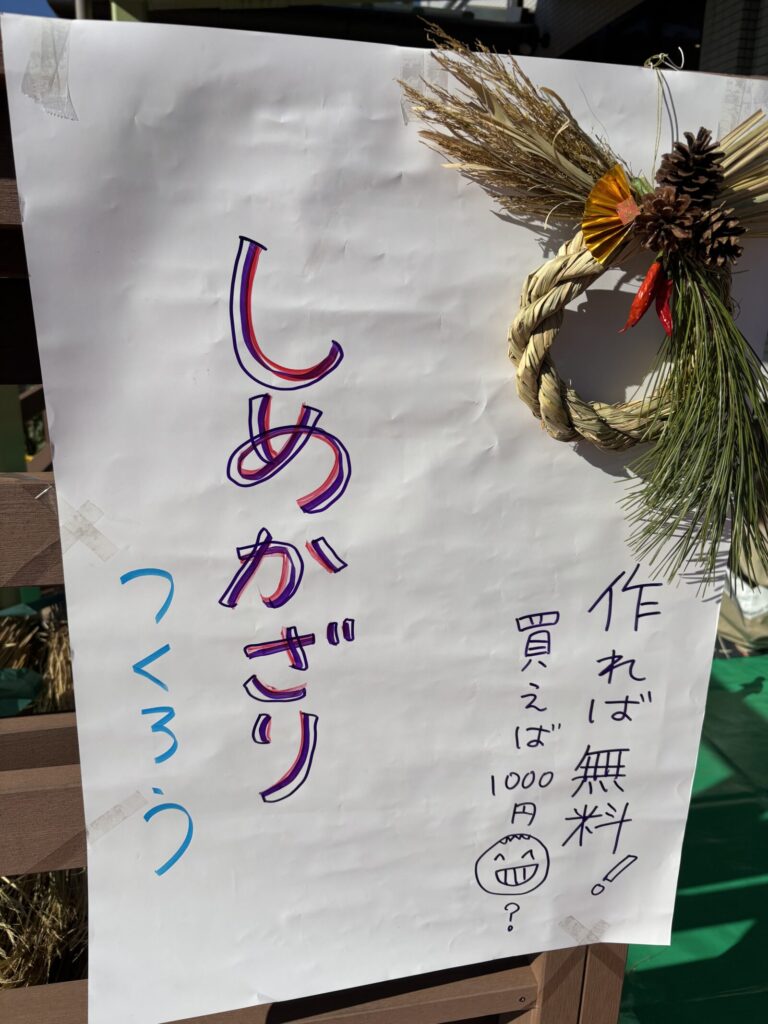 作れば無料!
買えば1000円
?
しめかざり
つくろう